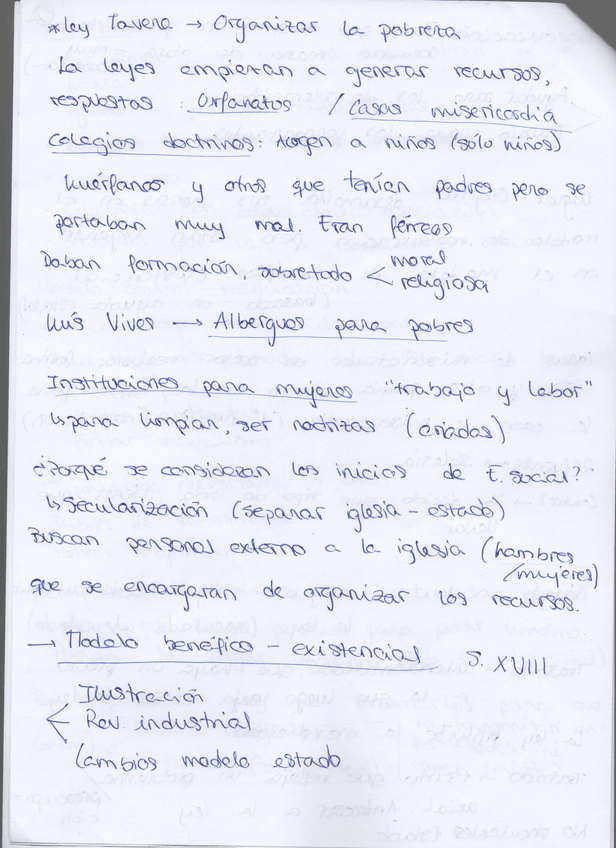 *Ley Tavera → Organizar la pobreza
La leyes empiezan a generar recursos,
respuestas : Orfanatos / Casas misericordia
Colegios doctrinos: Acogen a niños (sólo niños)
huérfanos y otros que tenían padres pero se
portaban muy mal. Eran férreos
Daban formación, sobretodo < moral
religiosa
Luís Vives → Albergues para pobres
Instituciones para mujeres "trabajo y labor"
↳ para limpiar, ser nodrizas (criadas)
¿Porqué se consideran los inicios de t. social?
↳ Secularización (separar iglesia - estado)
Buscan personal externo a la iglesia (hombres
/mujeres)
que se encargaran de organizar los recursos.
→ Modelo benéfico - existencial S. XVIII
< Ilustración
Rev. industrial
Cambios modelo estado